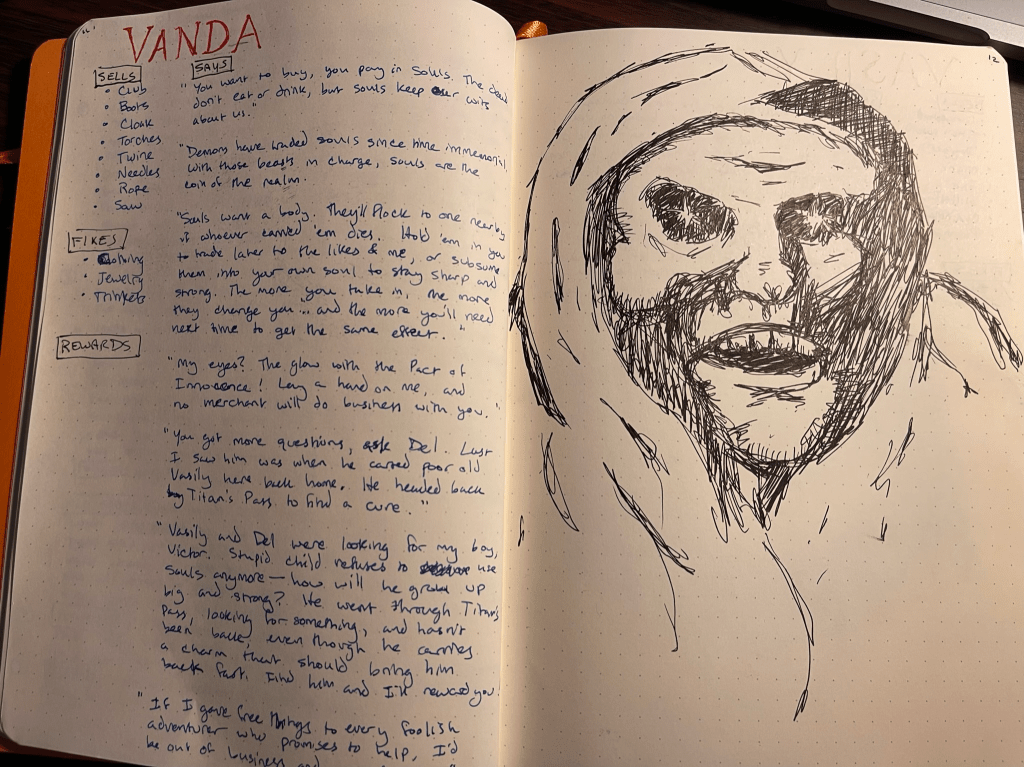 VANDA
SELLS
• Club
• Boots
• Cloak
• Torches
• Twine
• Needles
• Rope
• Saw
FIXES
• Clothing
• Jewelry
• Trinkets
REWARDS
SAYS
"You want to buy, you pay in Souls. The dead
don't eat or drink, but souls keep our wits
about us."
"Demons have traded souls since time immemorial,
with those beasts in charge, souls are the
coin of the realm.
"Souls want a body. They'll flock to one nearby
if whoever carried 'em dies. Hold 'em in you
to trade later to the likes of me, or subsume
them into your own soul to stay sharp and
strong. The more you take in, the more
they change you... and the more you'll need
next time to get the same effect."
"My eyes? The glow with the Pact of
Innocence! Lay a hand on me, and
no merchant will do business with you."
"You got more questions, ask Del. Last
I saw him was when he carted poor old
Vasily here back home. He headed back
Titan's Pass to find a cure."
"Vasily and Del were looking for my boy,
Victor. Stupid child refuses to use
souls anymore — how will he grow up
big and strong? He went through Titan's
Pass, looking for something, and hasn't
been back, even though he carries
a charm that should bring him
back fast. Find him and I'll reward you.
"If I gave free things to every foolish
adventurer who promises to help, I'd
be out of business and
12